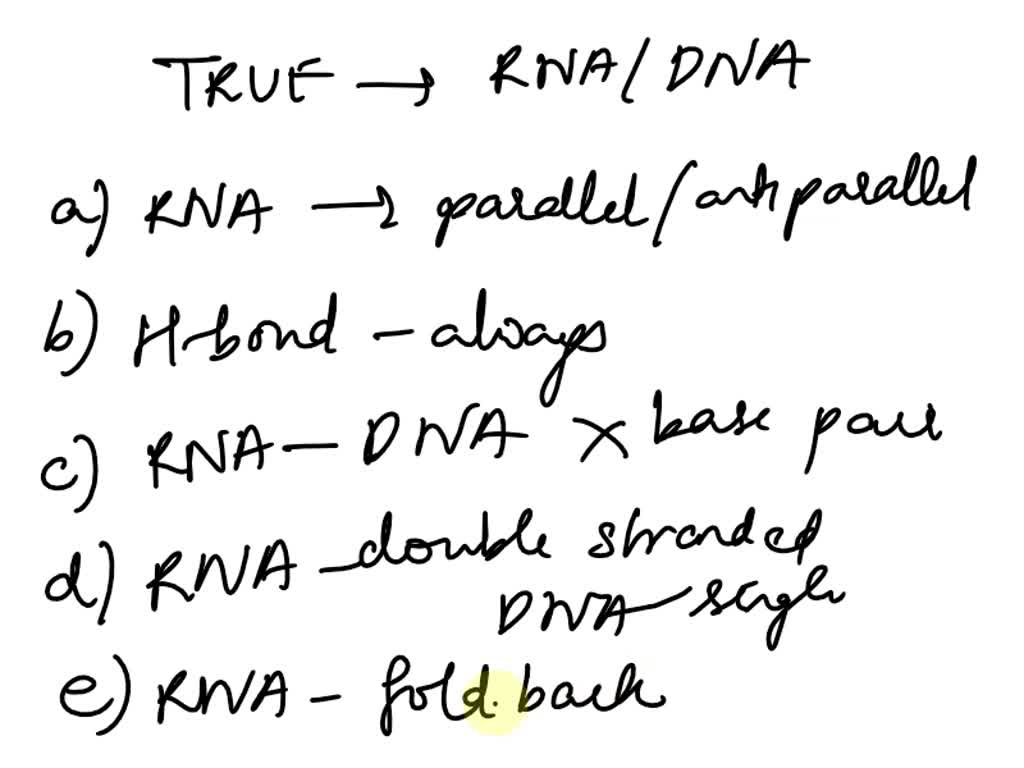 TRUE → RNA/DNA
a) RNA → parallel/antiparallel
b) H-bond - always
c) RNA - DNA X base pair
d) RNA - double stranded
DNA - single
e) RNA - fold back